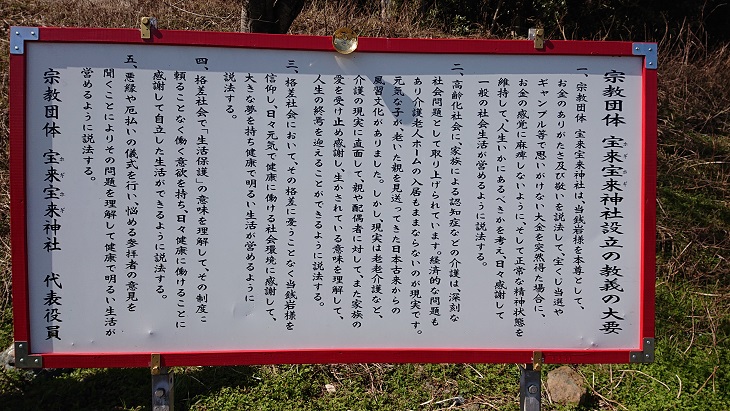 宗教団体 宝来宝来神社設立の教義の大要
一、宗教団体 宝来宝来神社は、当銭岩様を本尊として、
お金のありがたさ及び敬いを説法して、宝くじ当選や
ギャンブル等で思いがけない大金を突然得た場合に、
お金の感覚に麻痺しないように、そして正常な精神状態を
維持して、人生いかにあるべきかを考え、日々感謝して
一般の社会生活が営めるように説法する。
二、高齢化社会に家族による認知症などの介護は、深刻な
社会問題として取り上げられています。経済的な問題も
あり介護老人ホームの入居もままならないのが現実です。
元気な子が、老いた親を見送ってきた日本古来からの
風習文化がありました。しかし、現実は老老介護など、
介護の現実に直面して、親や配偶者に対して、また家族の
愛を受け止め感謝し、生かされている意味を理解して、
人生の終焉を迎えることができるように説法する。
三、格差社会において、その格差に憂うことなく当銭岩様を
信仰し、日々元気で健康に働ける社会環境に感謝して、
大きな夢を持ち健康で明るい生活が営めるように
説法する。
四、格差社会で「生活保護」の意味を理解して、その制度に
頼ることなく働く意欲を持ち、日々健康に働けることに
感謝して自立した生活ができるように説法する。
五、悪縁や厄払いの儀式を行い、悩める参拝者の意見を
聞くことによりその問題を理解して健康で明るい生活が
営めるように説法する。
宗教団体 宝来宝来神社 代表役員